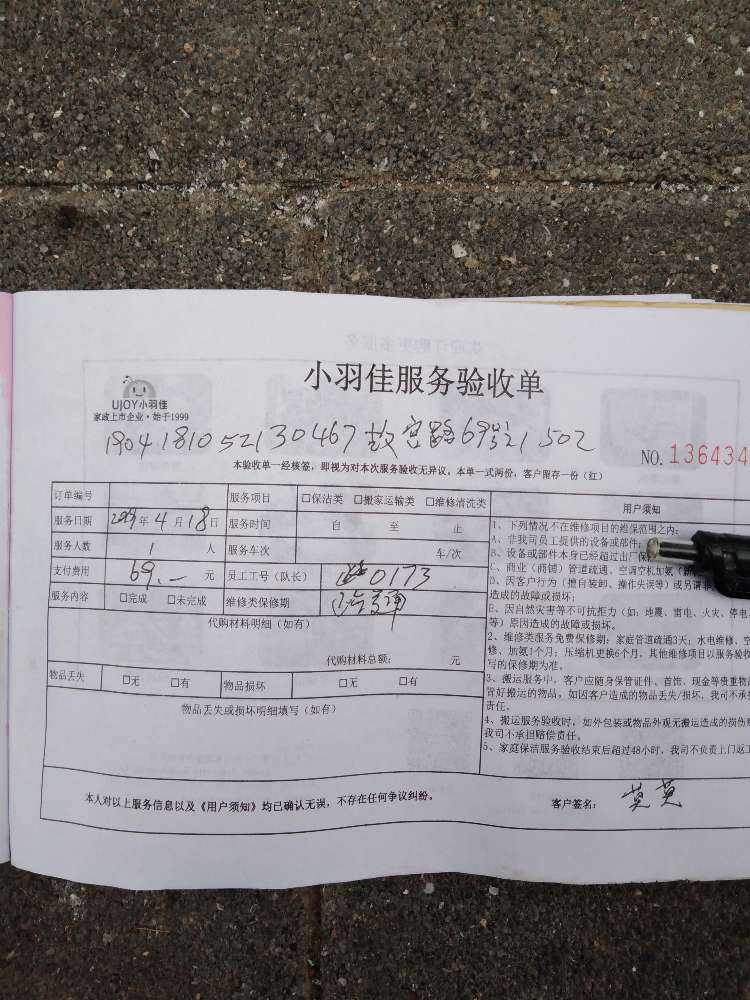 小羽佳服务验收单
UJOY小羽佳
家政上市企业·始于1999
190418105213 0467 故宫路69号21502
NO. 136434
本验收单一经核签，即视为对本次服务验收无异议。本单一式两份，客户留存一份（红）
订单编号 服务项目 □保洁类 □搬家运输类 □维修清洗类
服务日期 2019年 4月 18日 服务时间 自 至 止
服务人数 1 人 服务车次 车/次
支付费用 69.— 元 员工工号（队长） 0173
服务内容 □完成 □未完成 维修类保修期
代购材料明细（如有）
代购材料总额： 元
物品丢失 □无 □有 物品损坏 □无 □有
物品丢失或损坏明细填写（如有）
用户须知
1、下列情况不在维修项目的维保范围之内：
A、非我司员工提供的设备或部件；
B、设备或部件本身已经超过出厂保
C、商业（商铺）管道疏通、空调空机加氨（
D、因客户行为（擅自装卸、操作失误等）或另请非
造成的故障或损坏；
E、因自然灾害等不可抗拒力（如：地震、雷电、火灾、停电
等）原因造成的故障或损坏。
2、维修类服务免费保修期：家庭管道疏通3天；水电维修、空
修、加氨1个月；压缩机更换6个月，其他维修项目以服务验收
写的保修期为准。
3、搬运服务中，客户应随身保管证件、首饰、现金等贵重物品
管好搬运的物品，如因客户造成的物品丢失/损坏，我司不承担
责任。
4、搬运服务验收时，如外包装或物品外观无搬运造成的损伤
我司不承担赔偿责任。
5、家庭保洁服务验收结束后超过48小时，我司不负责上门返工
本人对以上服务信息以及《用户须知》均已确认无误，不存在任何争议纠纷。
客户签名： 莫莫